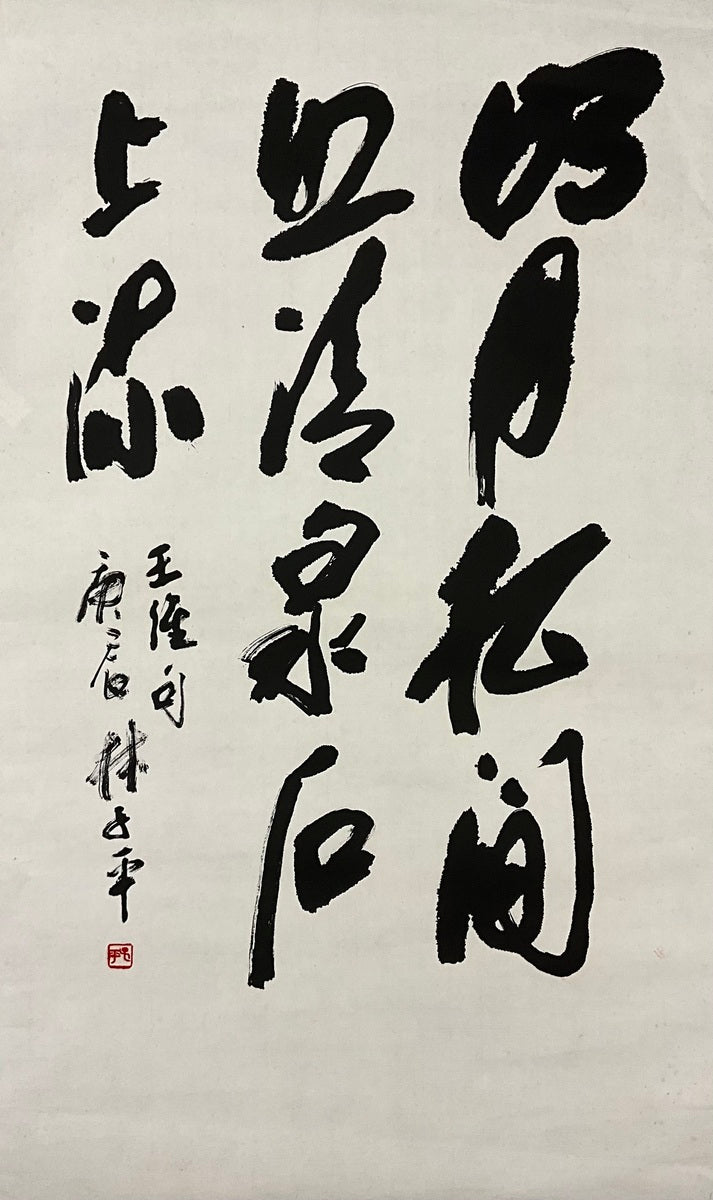 明月松間
照清泉石
上流
王維句
庚辰林子平